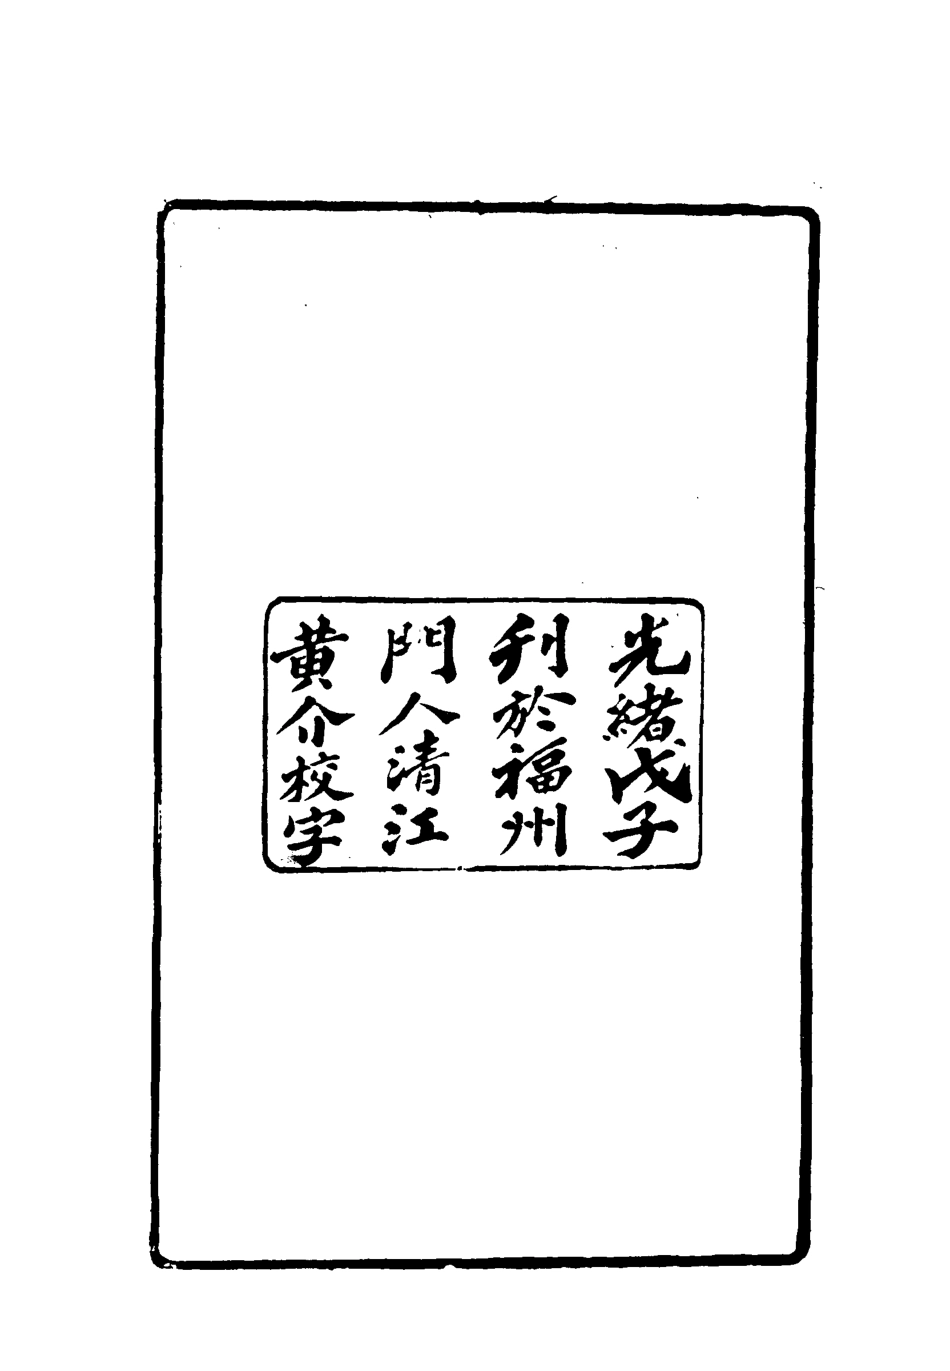 光緒戊子
刋於福州
門人清江
黄介校字